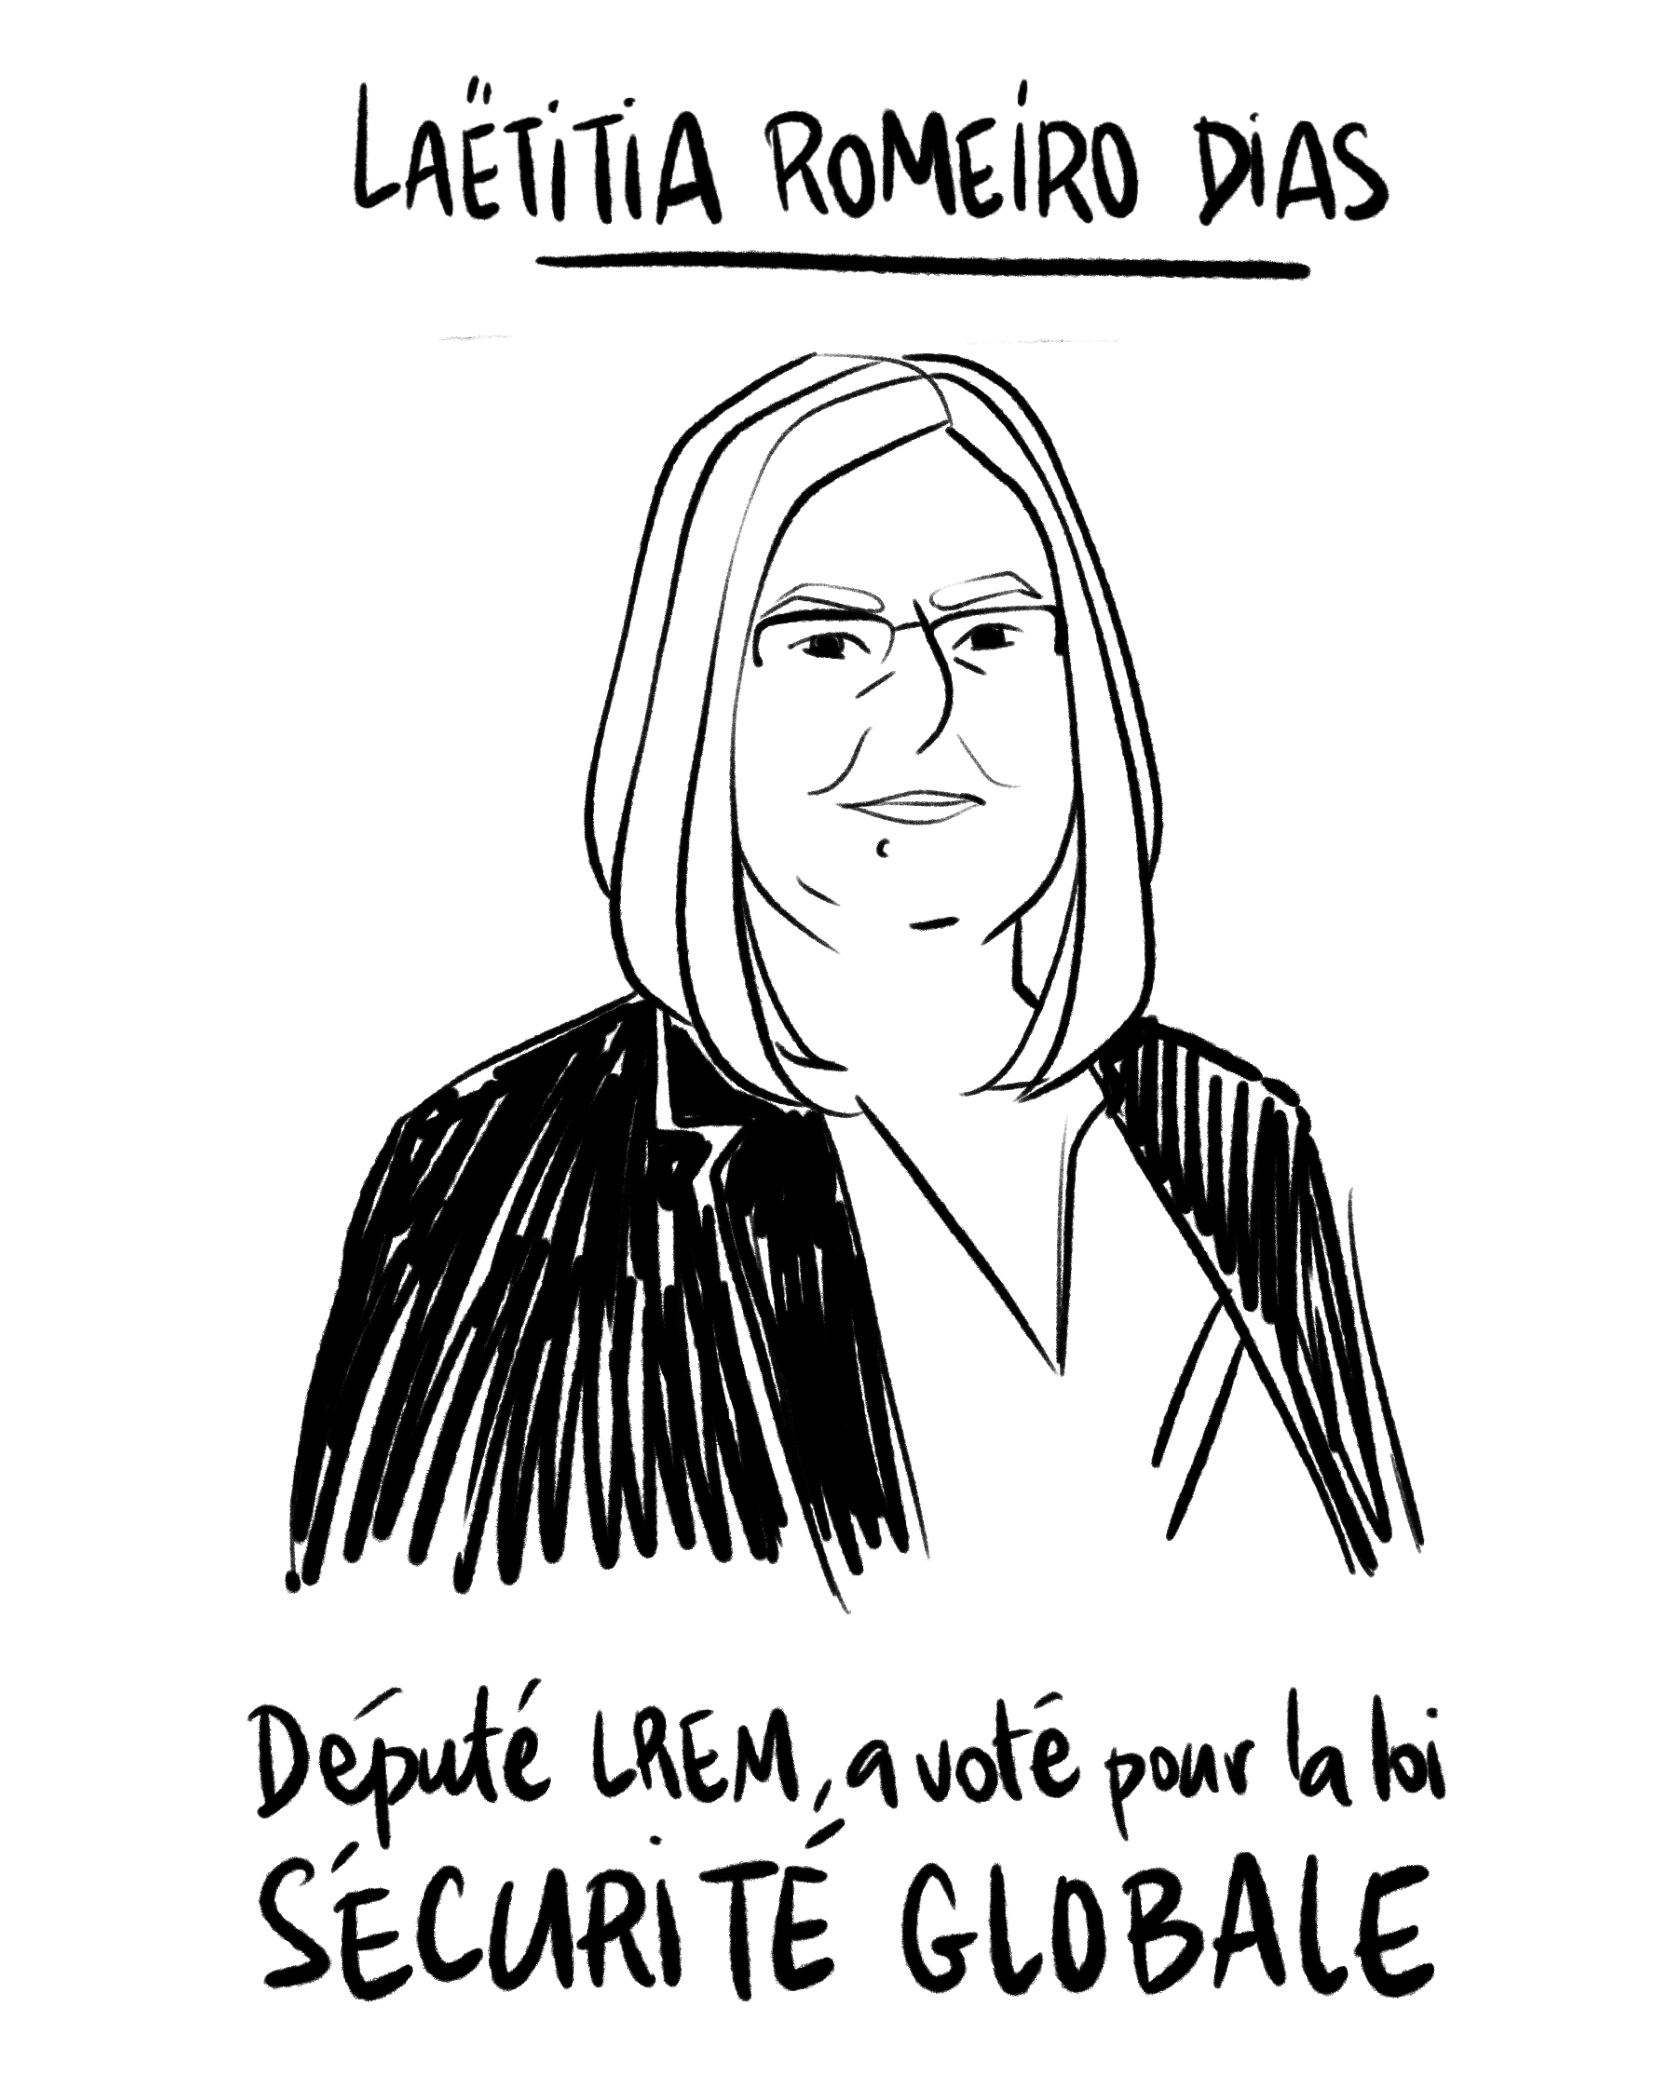 LAËTITIA ROMEIRO DIAS
Député LREM, a voté pour la loi
SÉCURITÉ GLOBALE